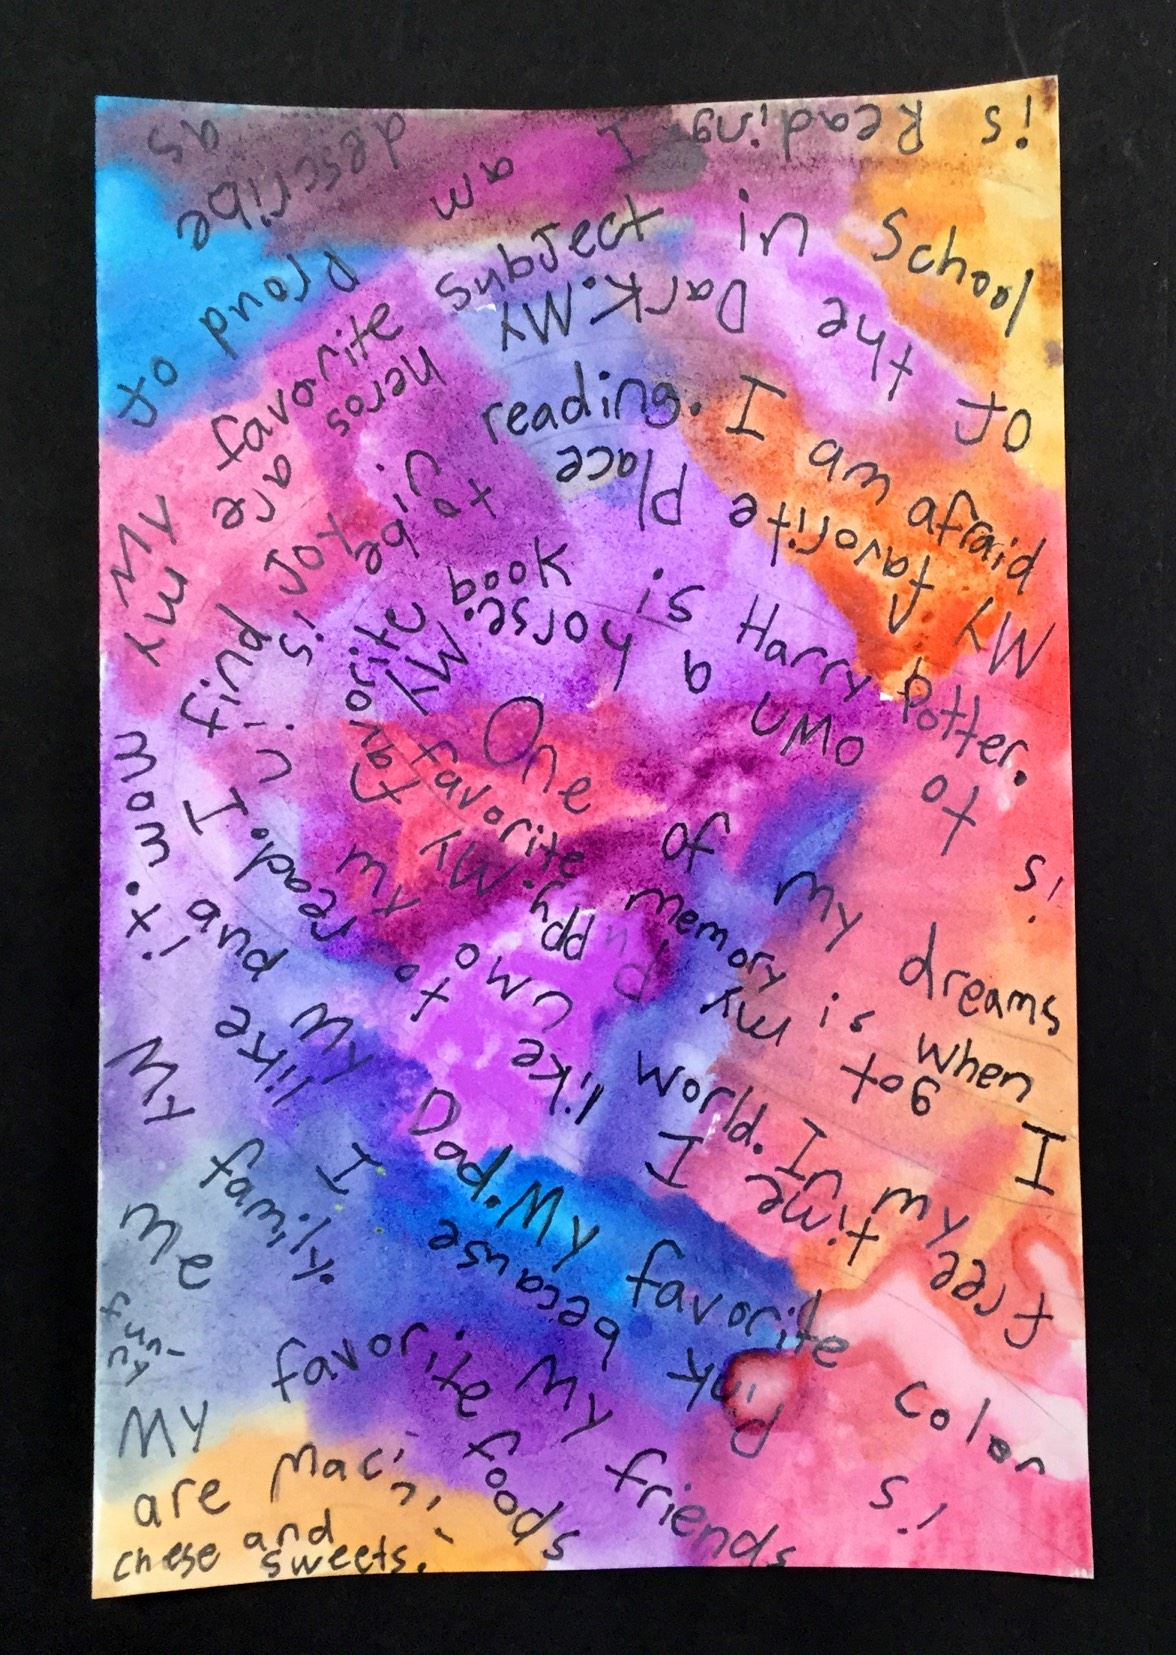 My favorite memory is when I
got my puppy. My Favorite
book is Harry potter.
My favorite place to be is in my own world. In my
free time I like to read. I find Joy in reading. I am afraid
of the Dark. My heros are my mom and Dad. My favorite color
is pink because I like it. My favorite subject in school
is Reading. I am proud of My family. My friends
describe as
Me
funny
One of my dreams
is to own a horse.
My favorite foods
are Mac in
chese and
sweets.